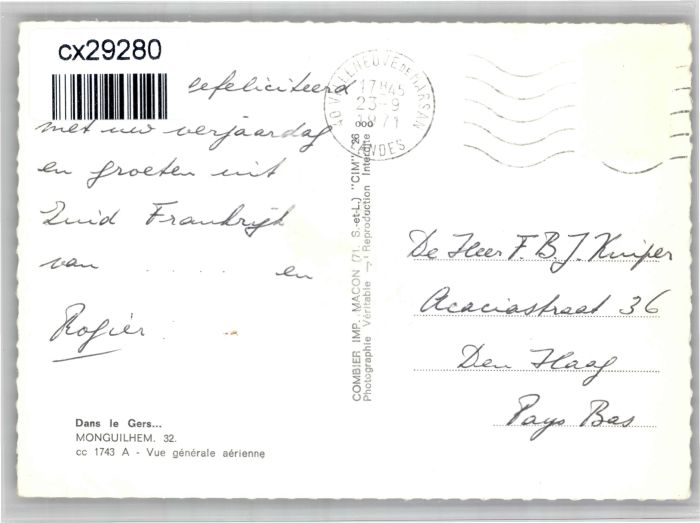 cx29280
Gefeliciteerd
met uw verjaardag
en groeten uit
Zuid Frankrijk
van . . . . . en
Rogier
Dans le Gers...
MONGUILHEM. 32.
cc 1743 A - Vue générale aérienne
COMBIER IMP. MACON (71. S.-et-L.) "CIM" 26 000
Photographie Véritable — Reproduction Interdite
40 VILLENEUVE DE MARSAN
17H45
23-9
1971
LANDES
De Heer F.B.J. Kuiper
Acaciastraat 36
Den Haag
Pays Bas